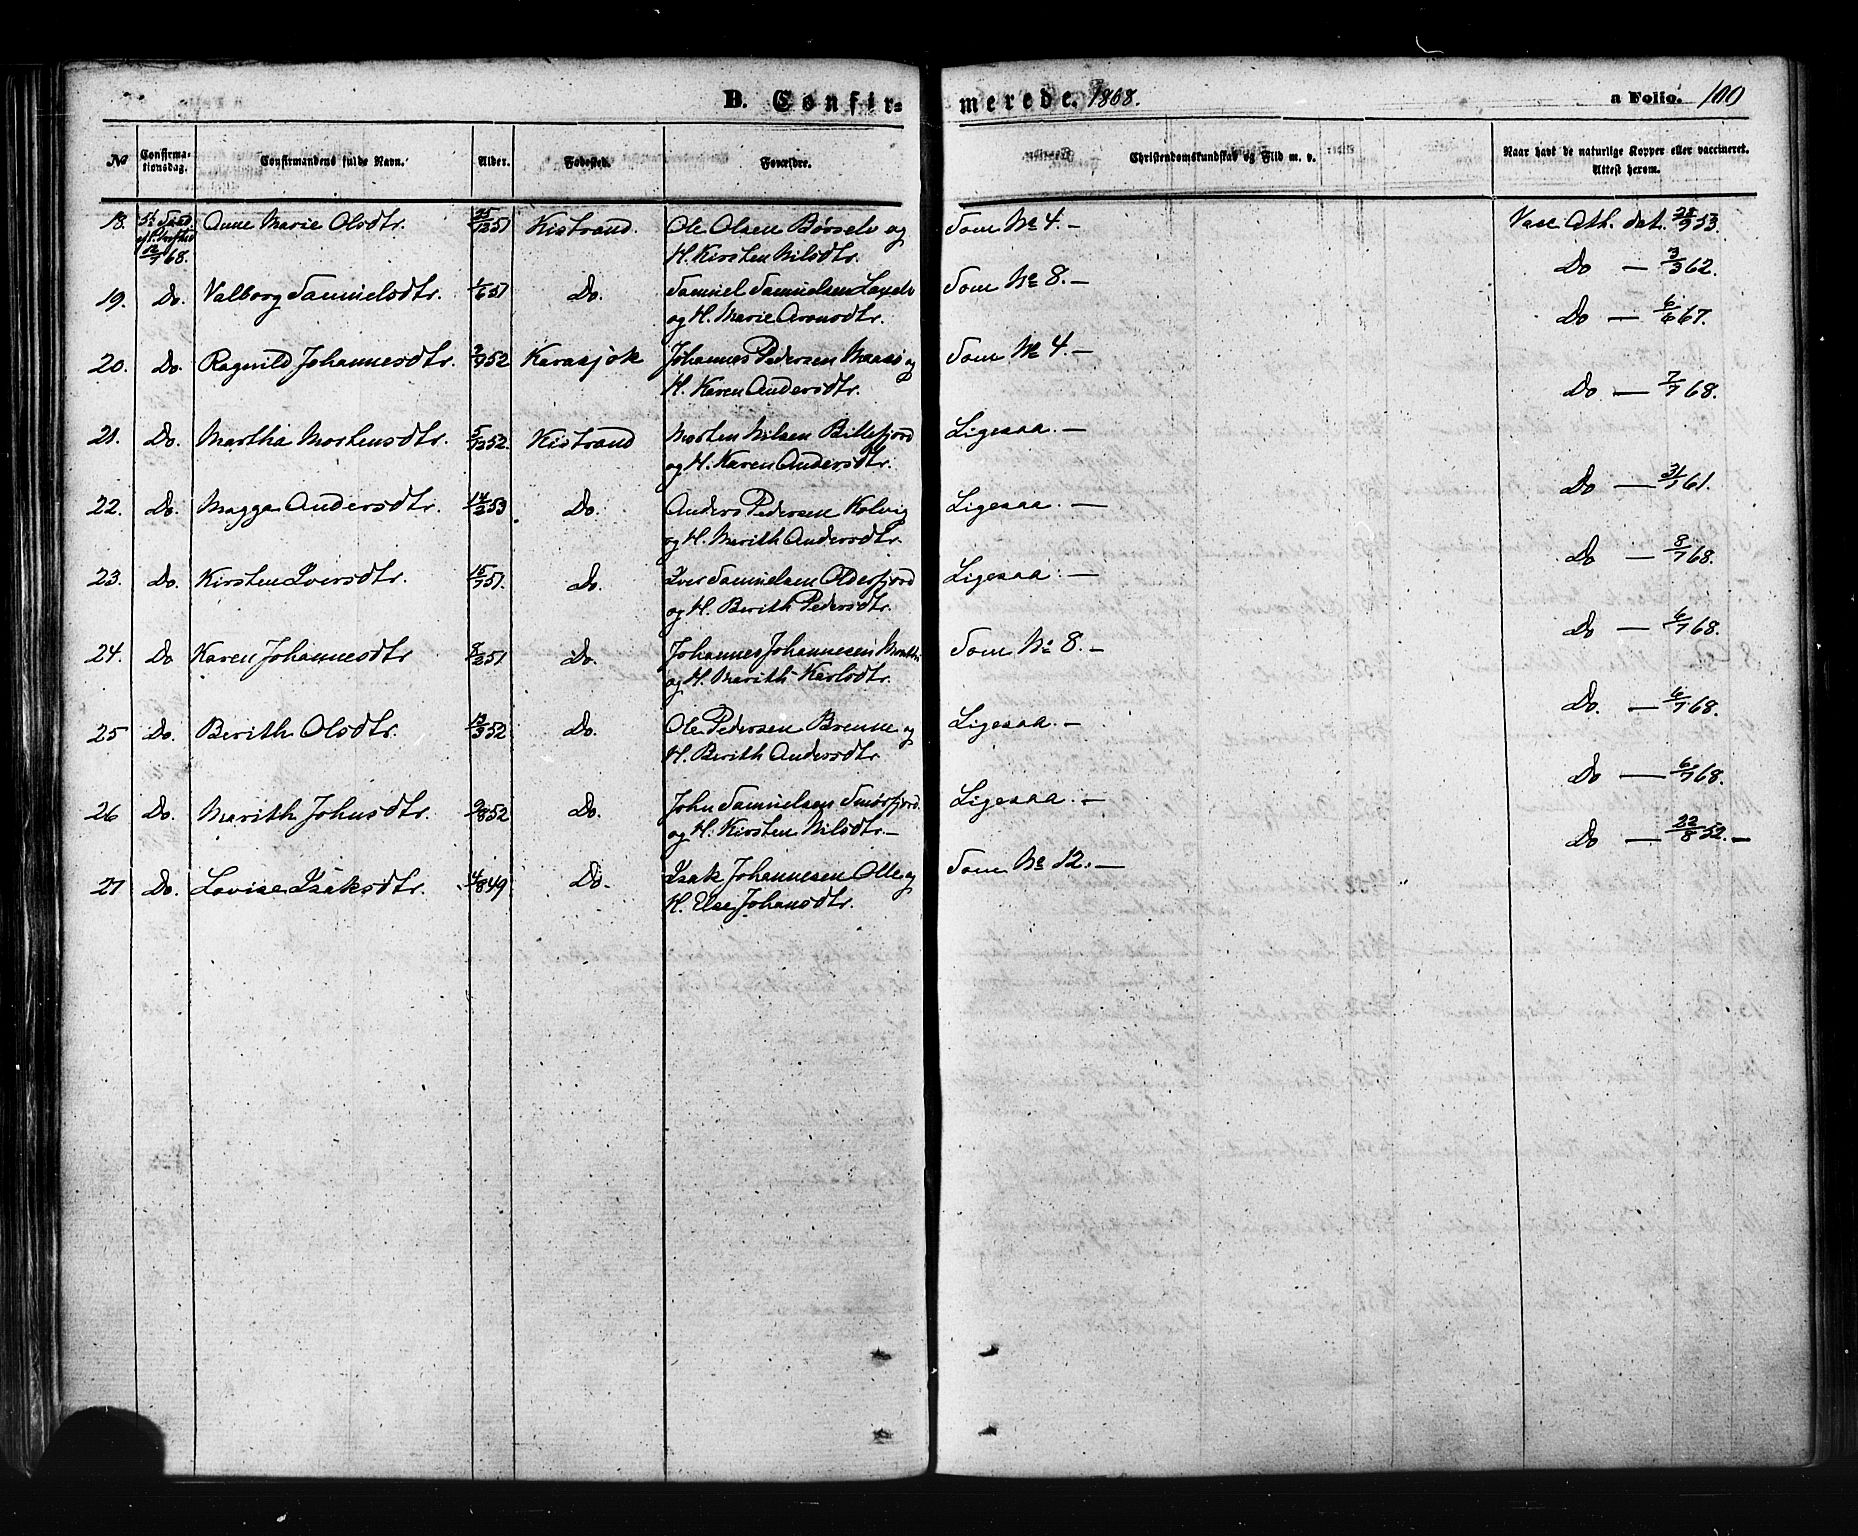 B. Confir=
merede. 1868.
a Folio. 100
No
Confirma-
tionsdag.
Confirmandens fulde Navn.
Alder.
Fødested.
Forældre.
Christendomskundskab og Flid m. v.
Naar havt de naturlige Kopper eller vaccineret.
Attest herom.
18. 12/7 68. Anne Marie Olsdtr. 25/12 51 Kistrand. Ole Olsen Børselv og Som No 4. — Vacc. Ath. dat. 22/9 53.
H. Kirsten Nilsdtr.
Do — 3/3 62.
19. Do. Valborg Samuelsdtr. 1/6 51 Do. Samuel Samuelsen Laxelv Som No 8. —
og H. Marie Aronsdtr.
Do — 6/6 67.
20. Do. Ragnild Johannesdtr. 2/9 52 Karasjok Johannes Pedersen Maasø og Som No 4. —
H. Karen Andersdtr.
Do — 7/7 68.
21. Do. Martha Mortensdtr. 5/12 52. Kistrand Morten Nilsen Billefjord Ligesaa. —
og H. Karen Andersdtr.
Do — 31/7 61.
22. Do. Magga Andersdtr. 14/2 53 Do. Anders Pedersen Kolvig Ligesaa. —
og H. Marith Andersdtr.
Do — 8/7 68.
23. Do. Kirsten Iversdtr. 15/7 51. Do. Iver Samuelsen Olderfjord Ligesaa. —
og H. Berith Pedersdtr.
Do — 6/7 68.
24. Do Karen Johannesdtr 8/2 51 Do. Johannes Johannesen Som No 8. —
og H. Marith Karlsdtr.
Do. — 6/7 68.
25 Do. Berith Olsdtr. 13/3 52 Do. Ole Pedersen Brenne og Ligesaa. —
H. Berith Andersdtr.
Do — 6/7 68.
26 Do. Marith Johnsdtr. 9/8 52 Do. John Samuelsen Smørfjord. Ligesaa. —
og H. Kirsten Nilsdtr. —
Do — 22/8 52. —
27 Do. Lovise Isaksdtr. 4/8 49 Do. Isak Johannesen Olle og Som No 12. —
H. Else Johansdtr.